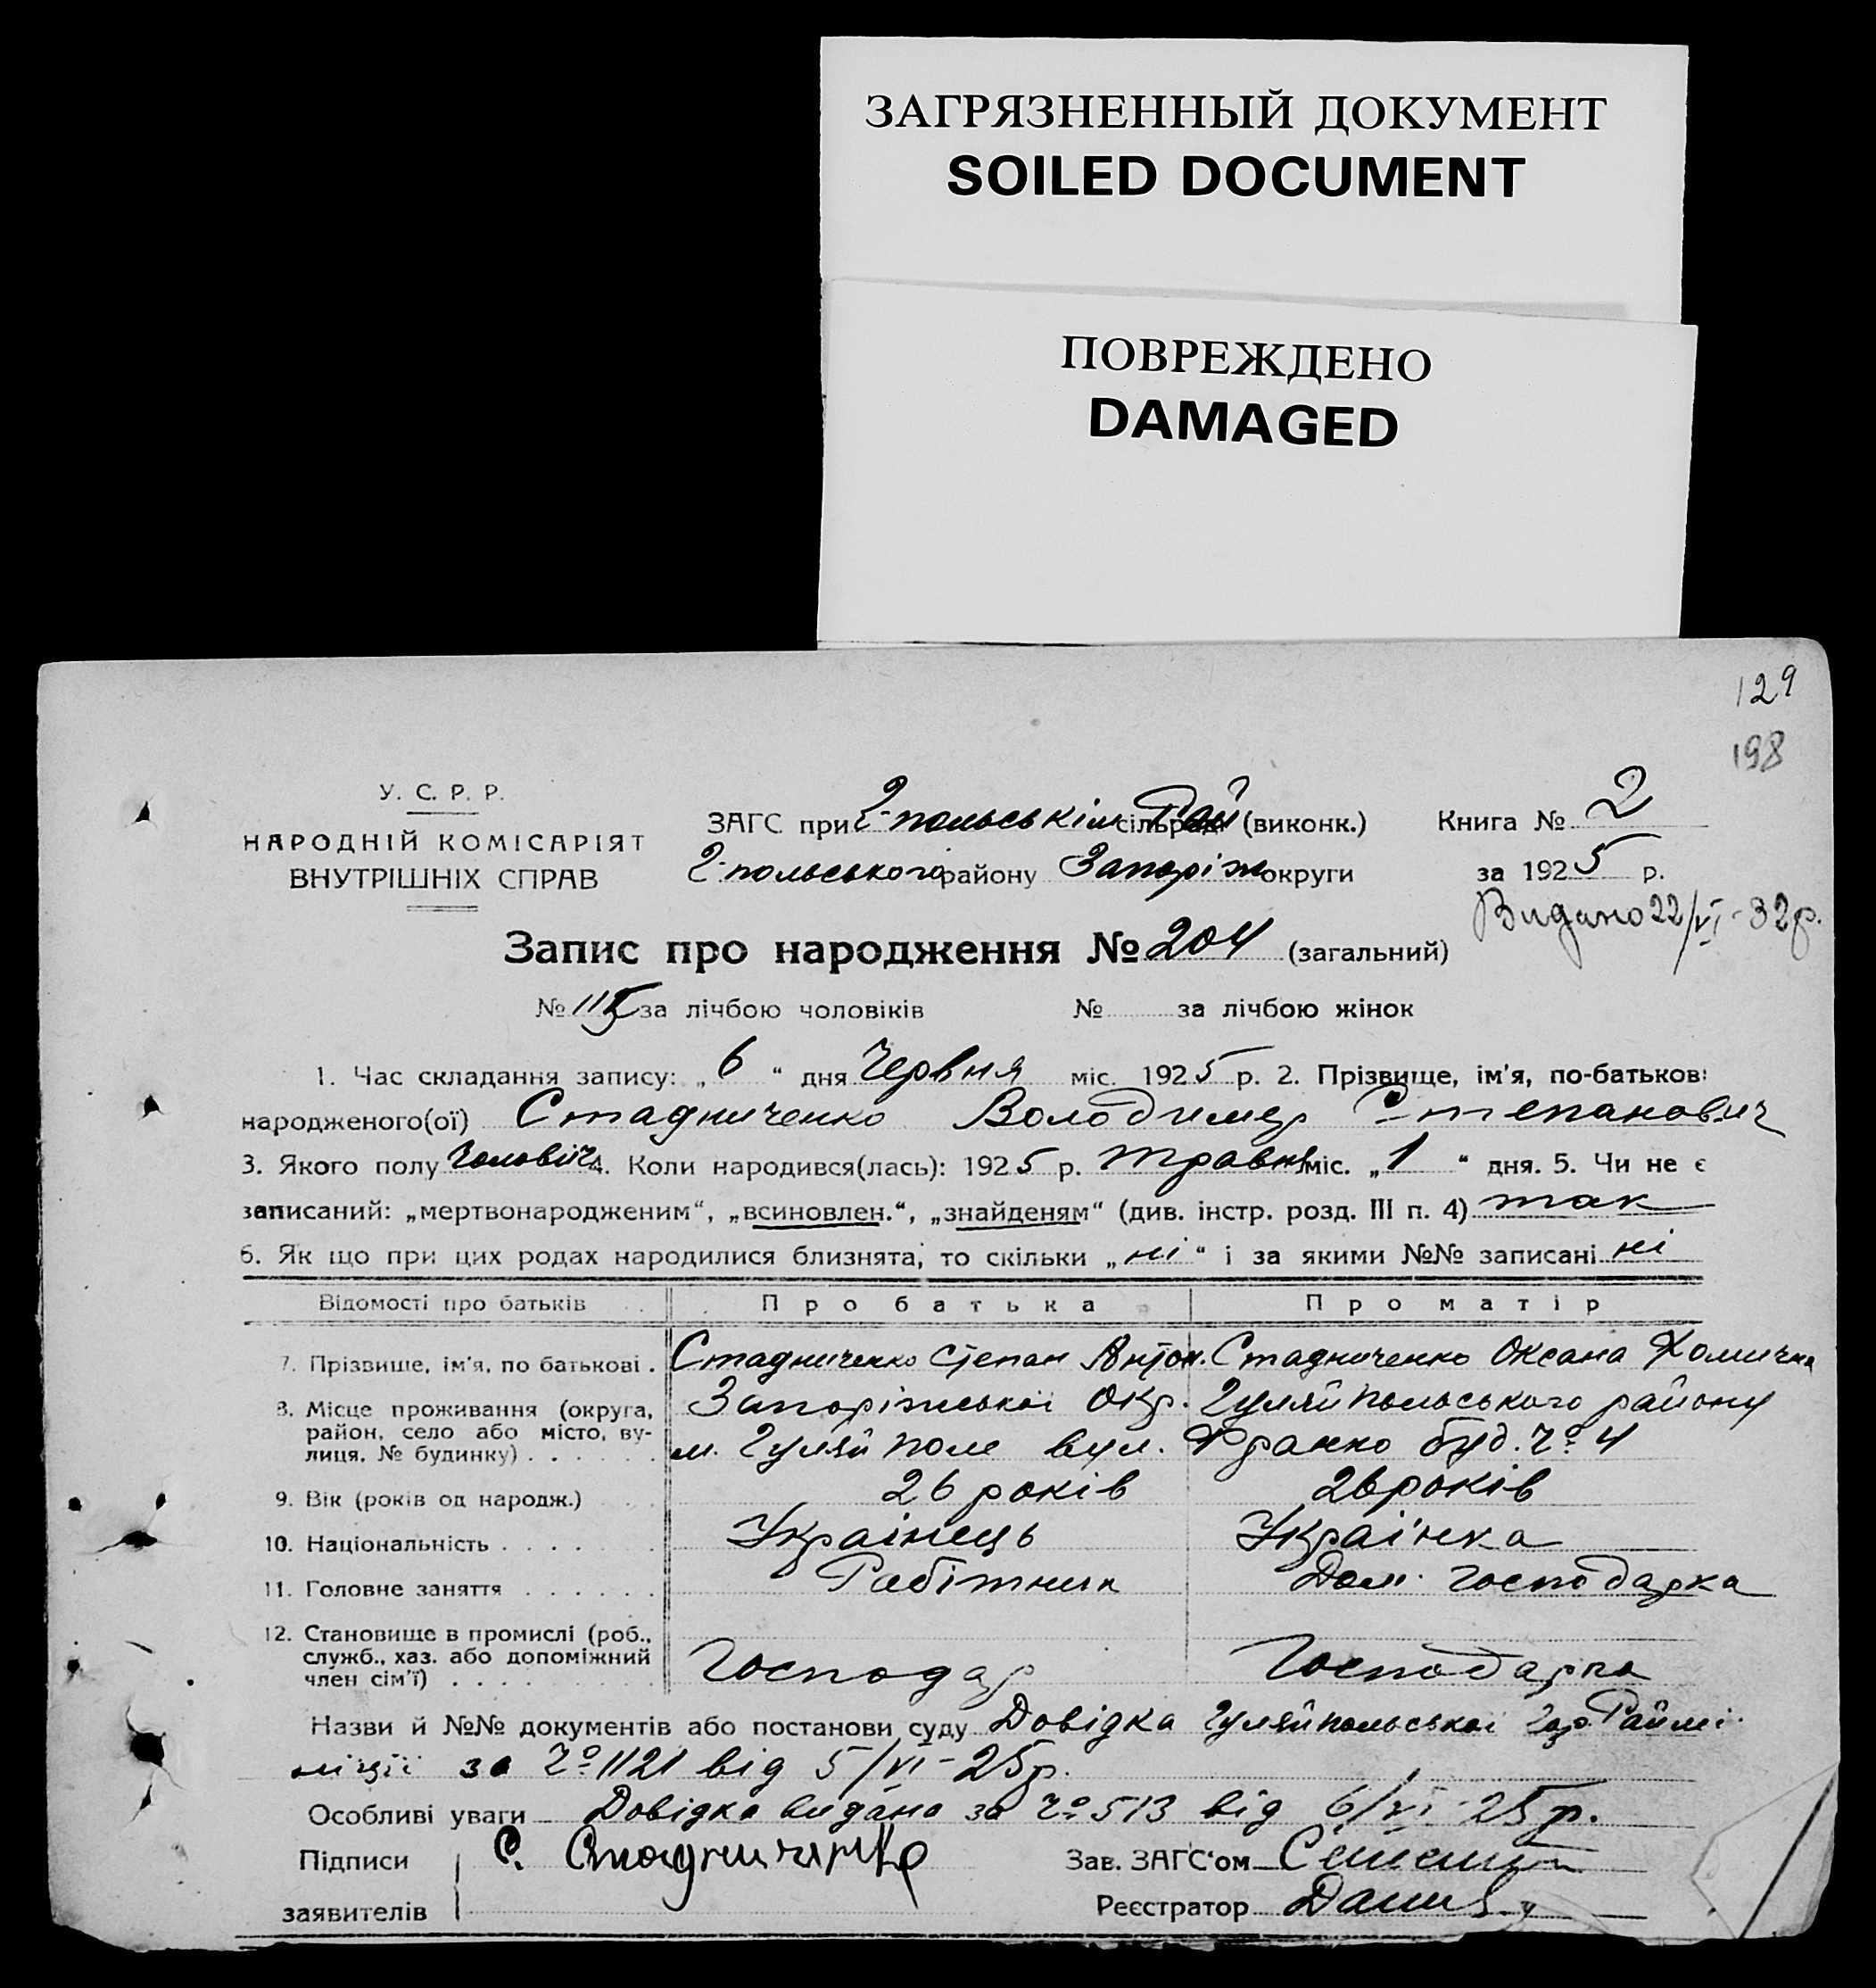 ЗАГРЯЗНЕННЫЙ ДОКУМЕНТ
SOILED DOCUMENT
ПОВРЕЖДЕНО
DAMAGED
129
198
У. С. Р. Р.
НАРОДНІЙ КОМІСАРІЯТ
ВНУТРІШНІХ СПРАВ
ЗАГС при Г-польськім сільраді Рай (виконк.) Книга № 2
Г-польського району Запоріж округи за 1925 р.
Видано 22/VI-32р.
Запис про народження № 204 (загальний)
№ 115 за лічбою чоловіків № за лічбою жінок
1. Час складання запису: „6“ дня Червня міс. 1925 р. 2. Прізвище, ім'я, по-батькові
народженого(ої) Стадниченко Володимер Степанович
3. Якого полу Чоловіч 4. Коли народився(лась): 1925 р. травня міс. „1“ дня. 5. Чи не є
записаний: „мертвонародженим“, „всиновлен.“, „знайденям“ (див. інстр. розд. III п. 4) так
6. Як що при цих родах народилися близнята, то скільки „ні“ і за якими №№ записані ні
Відомості про батьків Про батька Про матір
7. Прізвище, ім'я, по батькові . Стадниченко Степан Антон. Стадниченко Оксана Хомична
8. Місце проживання (округа, район, село або місто, вулиця, № будинку) . . . . . . Запоріжської Окр. Гуляйпольського району
м. Гуляй поле вул. Франко буд. № 4
9. Вік (років од народж.) 26 років 26 років
10. Національність . . . . . . . Українець Українка
11. Головне заняття . . . . . . Робітник Дом. господарка
12. Становище в промислі (роб., служб., хаз. або допоміжний член сім'ї) . . . . Господар Господарка
Назви й №№ документів або постанови суду Довідка Гуляйпольської Гор. Раймі-
ліції за № 1121 від 5/VI-25р.
Особливі уваги Довідка видана за № 513 від 6/VI-25р.
Підписи С. Стадниченко Зав. ЗАГС'ом
заявителів Реєстратор